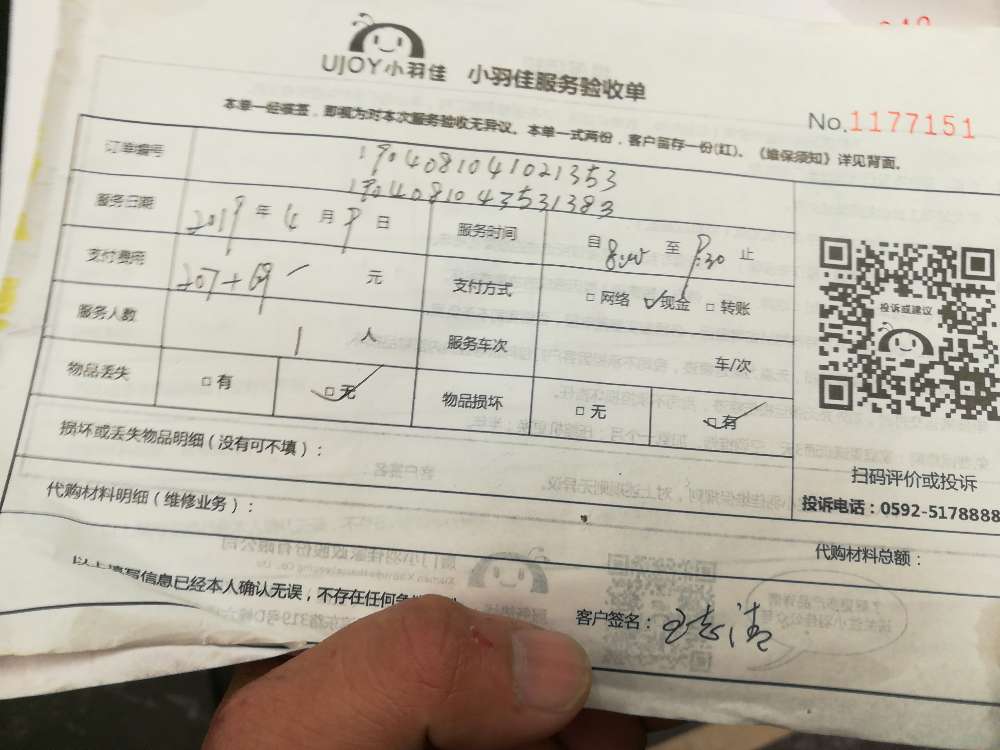 UJOY小羽佳 小羽佳服务验收单
No.1177151
本单一经被签，即视为对本次服务验收无异议。本单一式两份，客户留存一份(红)。《维保须知》详见背面。
订单编号 1904081041021353
1904081043531383
服务日期 2019年4月9日 服务时间 自8:00至9:30止
支付费用 207+69 元 支付方式 □网络 ✓现金 □转账
服务人数 1人 服务车次 车/次
物品丢失 □有 □无 物品损坏 □无 □有
损坏或丢失物品明细(没有可不填)：
代购材料明细(维修业务)：
代购材料总额：
投诉或建议
扫码评价或投诉
投诉电话：0592-5178888
以上填写信息已经本人确认无误，不存在任何
客户签名：